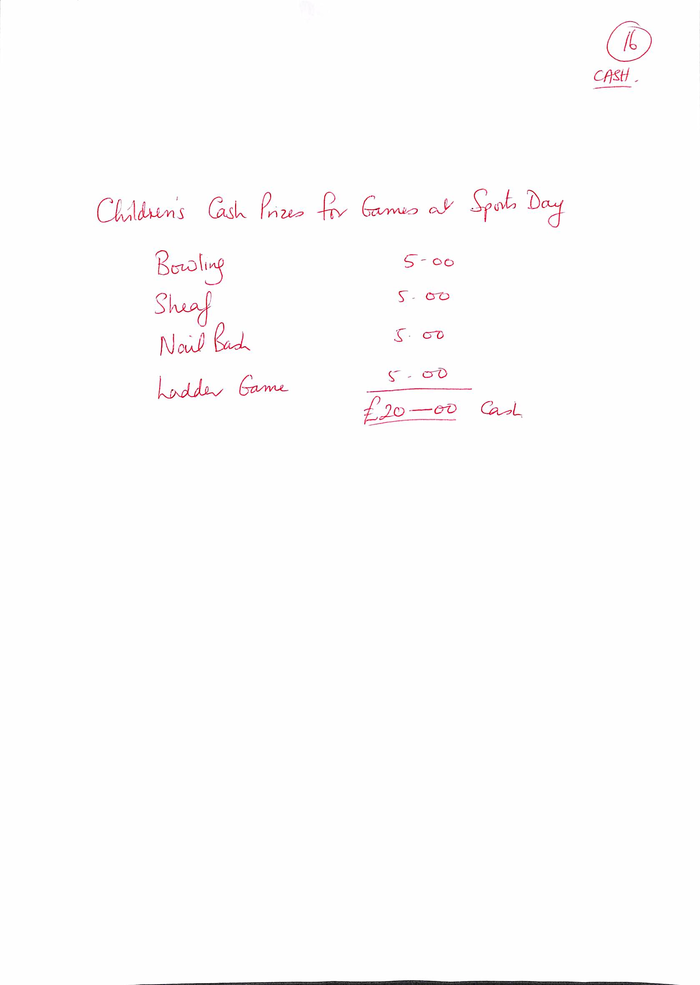 16
CASH.
Children's Cash Prizes for Games at Sports Day
Bowling 5-00
Sheaf 5.00
Nail Bash 5.00
Ladder Game 5.00
£20—00 Cash